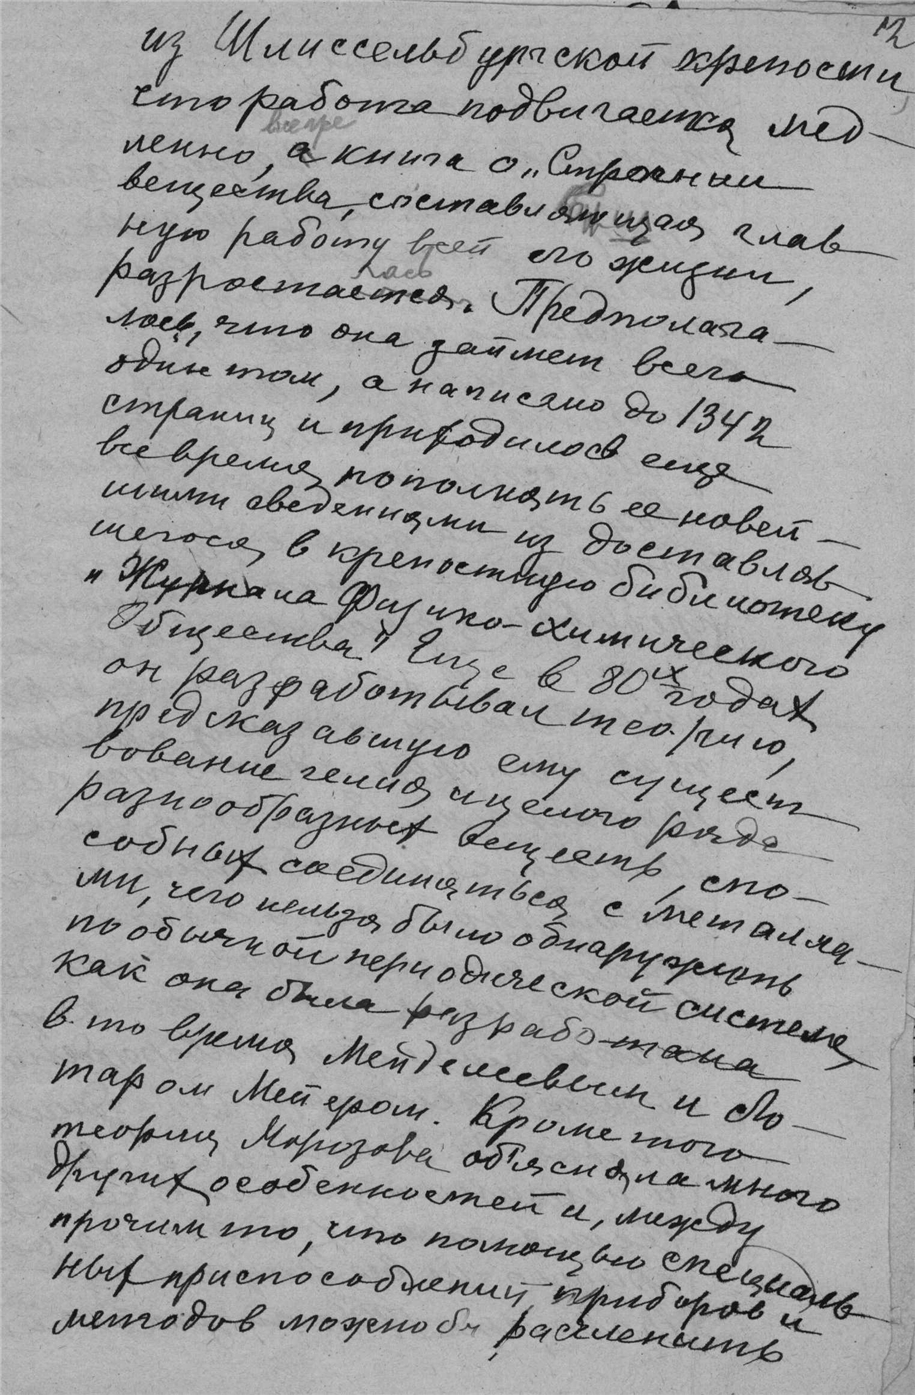 12
из Шлиссельбургской крепости,
что работа подвигается мед-
ленно, а книга о „Строении
вещества, составляющая глав
ную работу всей его жизни,
разростается. Предполага-
лось, что она займет всего
один том, а написано до 1342
страниц и приходилось еще
все время пополнять ее новей-
шими сведениями из доставляв
шегося в крепостную библиотеку
„Журнала Физико-Химического
Общества" Еще в 80х годах
он разработывал теорию,
предсказавшую ему сущест
вование гелия и целого ряда
разнообразных веществ, спо-
собных соединяться с металла-
ми, чего нельзя было обнаружить
по обычной периодической системе,
как она была разработана
в то время Менделеевым и Ло-
таром Мейером. Кроме того
теория Морозова об'ясняла много
других особенностей и, между
прочим то, что помощью специаль
ных приспособлений, приборов и
методов можно бы расчленить